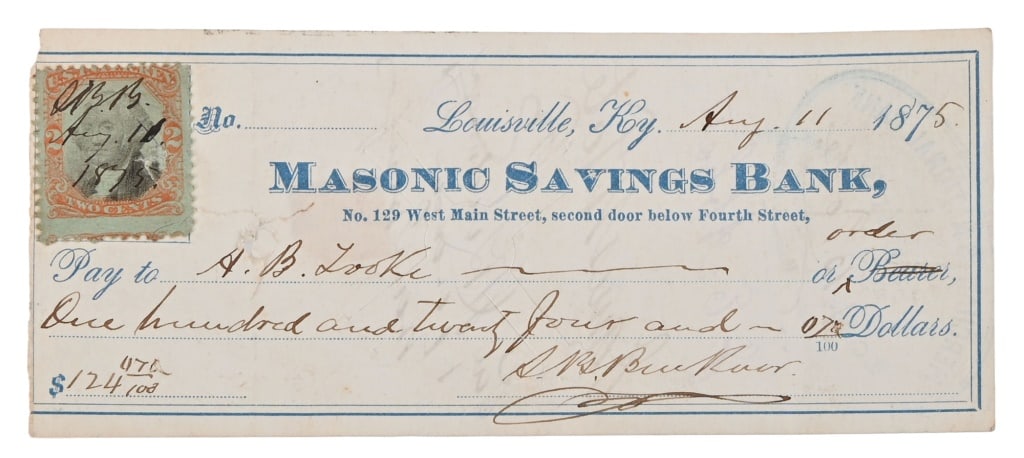 U.S. INTER. REV.
S.B.B.
Aug. 11.
1875.
2 2
TWO CENTS
No. Louisville, Ky. Aug. 11 1875.
MASONIC SAVINGS BANK,
No. 129 West Main Street, second door below Fourth Street,
order
Pay to A. B. Tooke or ^ Bearer,
One hundred and twenty four and ~ 07/100 Dollars.
$124 07/100
S. B.